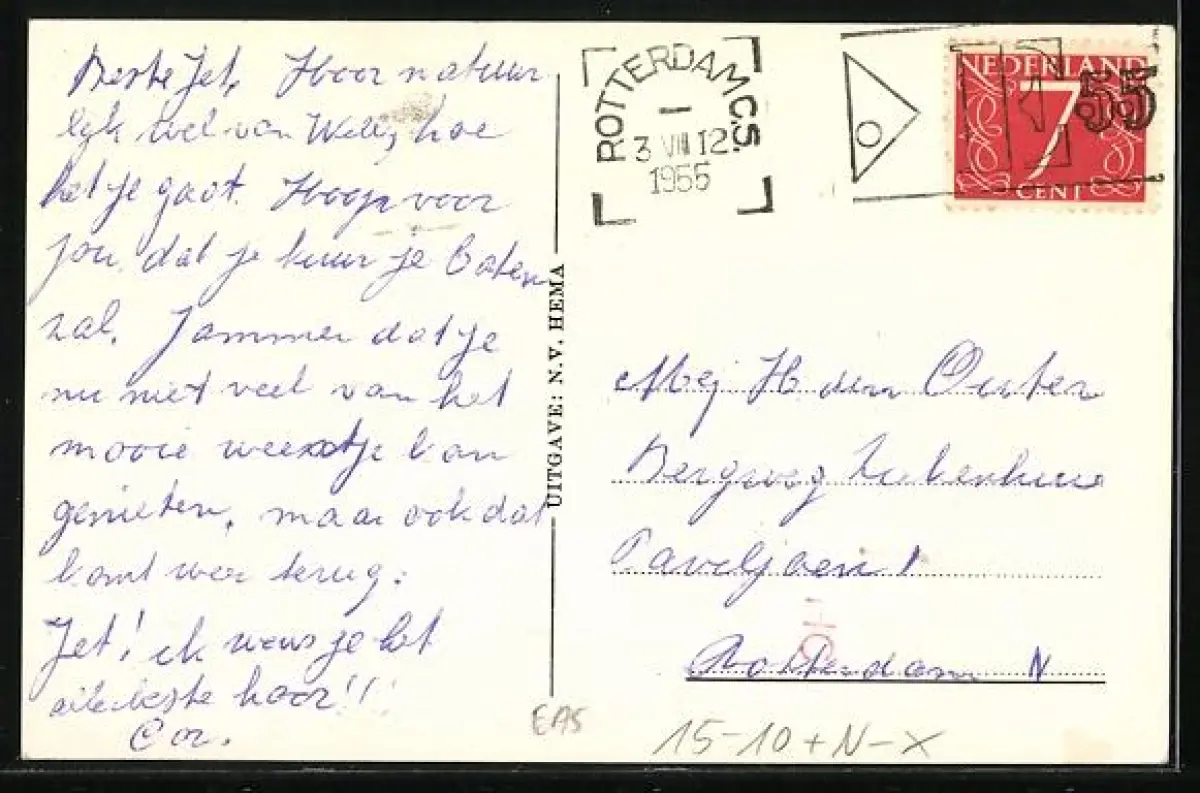 Beste Jet, Hoor natuur
lijk wel van Willy, hoe
het je gaat. Hoop voor
jou dat je kuur je baten
zal. Jammer dat je
nu niet veel van het
mooie weertje kan
genieten, maar ook dat
komt weer terug.
Jet! ik wens je het
allerbeste hoor!!!
Cor.
UITGAVE: N.V. HEMA
ROTTERDAM C.S.
I
3 VIII 12
1955
NEDERLAND
7
CENT
55
Mej H den Outer
Bergweg Ziekenhuis
Paviljoen 1
Rotterdam N
EAS
15-10+N-X